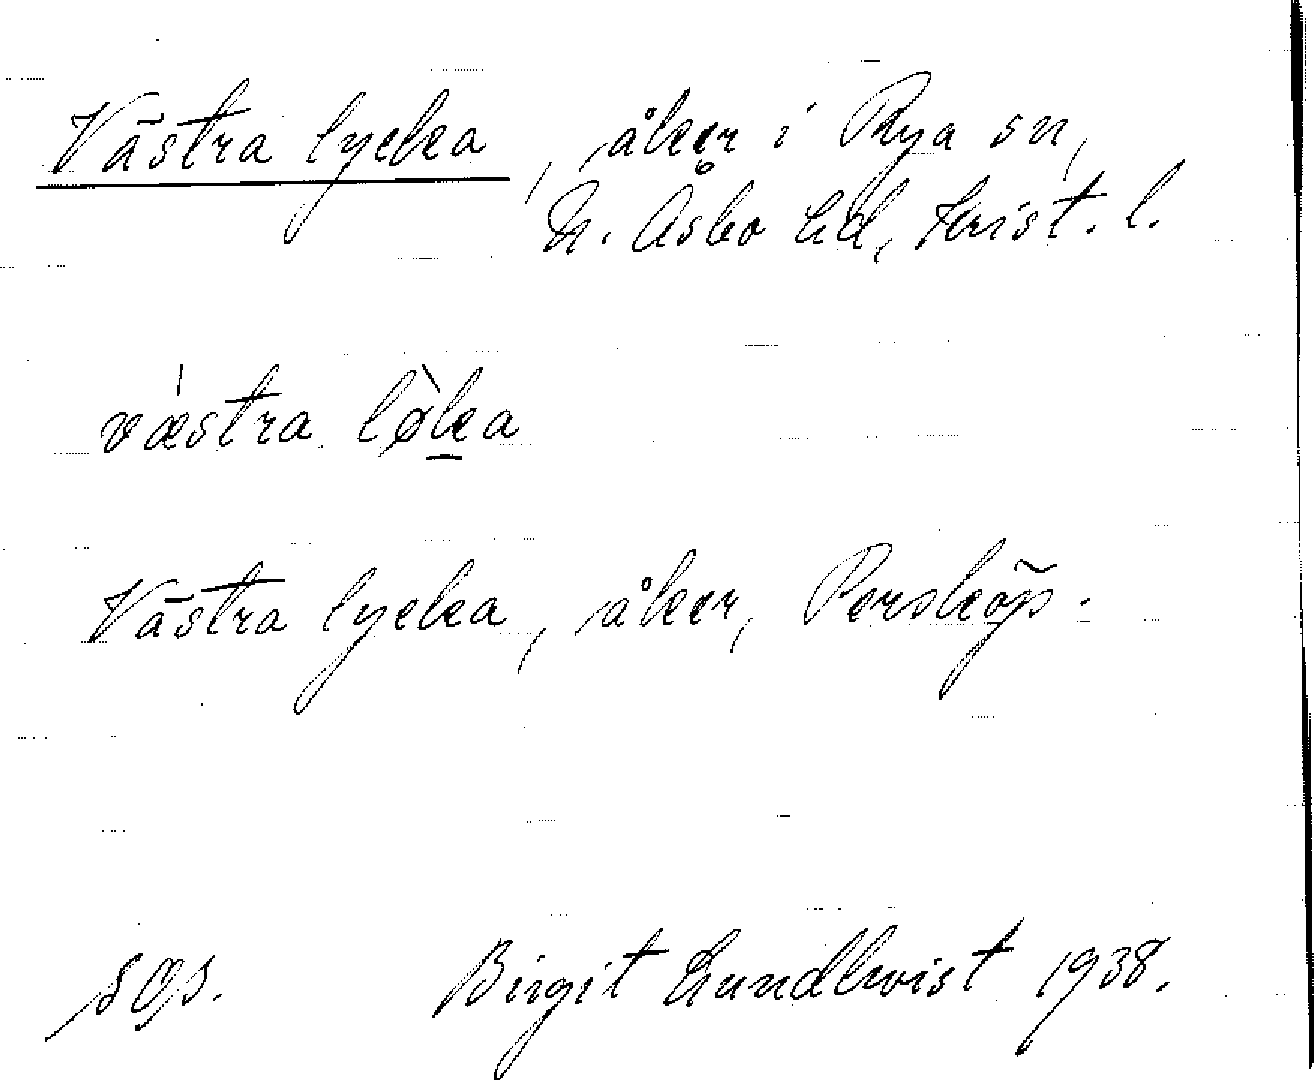 Västra lycka, åker i Rya sn,
N. Åsbo hd, Krist. l.
væstra løka
Västra lycka, åker, Perstorp.
Birgit Lundkvist 1938.